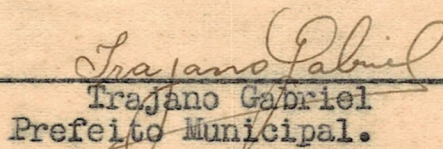 Trajano Gabriel
Trajano Gabriel
Prefeito Municipal.